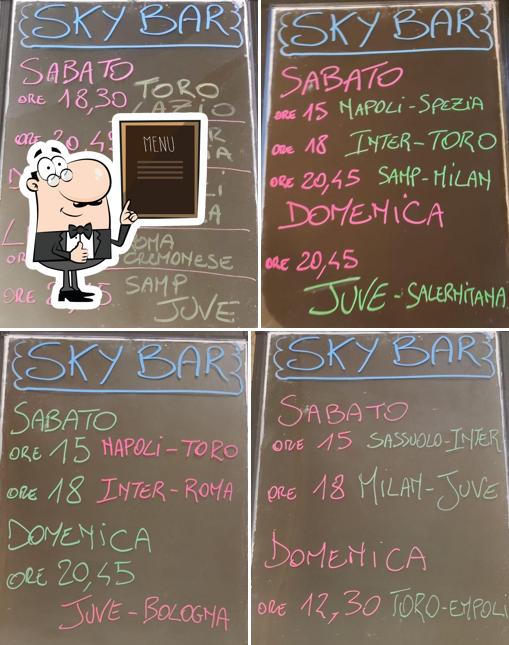 SKY BAR
SABATO
ORE 18,30 TORO
LAZIO
ORE 20,45
MENU
ROMA
CREMONESE
ORE
SAMP
JUVE
SKY BAR
SABATO
ORE 15 NAPOLI-SPEZIA
ORE 18 INTER-TORO
ORE 20,45 SAMP-MILAN
DOMENICA
ORE 20,45
JUVE-SALERNITANA
SKY BAR
SABATO
ORE 15 NAPOLI-TORO
ORE 18 INTER-ROMA
DOMENICA
ORE 20,45
JUVE-BOLOGNA
SKY BAR
SABATO
ORE 15 SASSUOLO-INTER
ORE 18 MILAN-JUVE
DOMENICA
ORE 12,30 TORO-EMPOLI